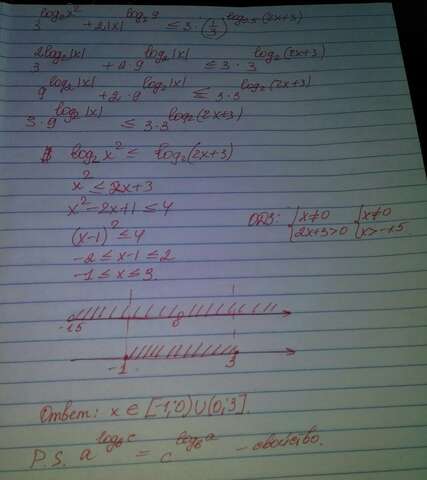 3^{log_2 x^2} + 2|x|^{log_2 9} ≤ 3 · (1/3)^{log_{0.5}(2x+3)}
3^{2log_2|x|} + 2·9^{log_2|x|} ≤ 3 · 3^{log_2(2x+3)}
9^{log_2|x|} + 2·9^{log_2|x|} ≤ 3·3^{log_2(2x+3)}
3·9^{log_2|x|} ≤ 3·3^{log_2(2x+3)}
log_2 x^2 ≤ log_2(2x+3)
x^2 ≤ 2x+3
x^2-2x+1 ≤ 4
(x-1)^2 ≤ 4
-2 ≤ x-1 ≤ 2
-1 ≤ x ≤ 3.
ОДЗ: { x≠0 { x≠0
2x+3>0 x>-1,5
-1,5 0
-1 3
Ответ: x ∈ [-1;0)∪(0;3].
P.S. a^{log_b c} = c^{log_b a} - свойство.